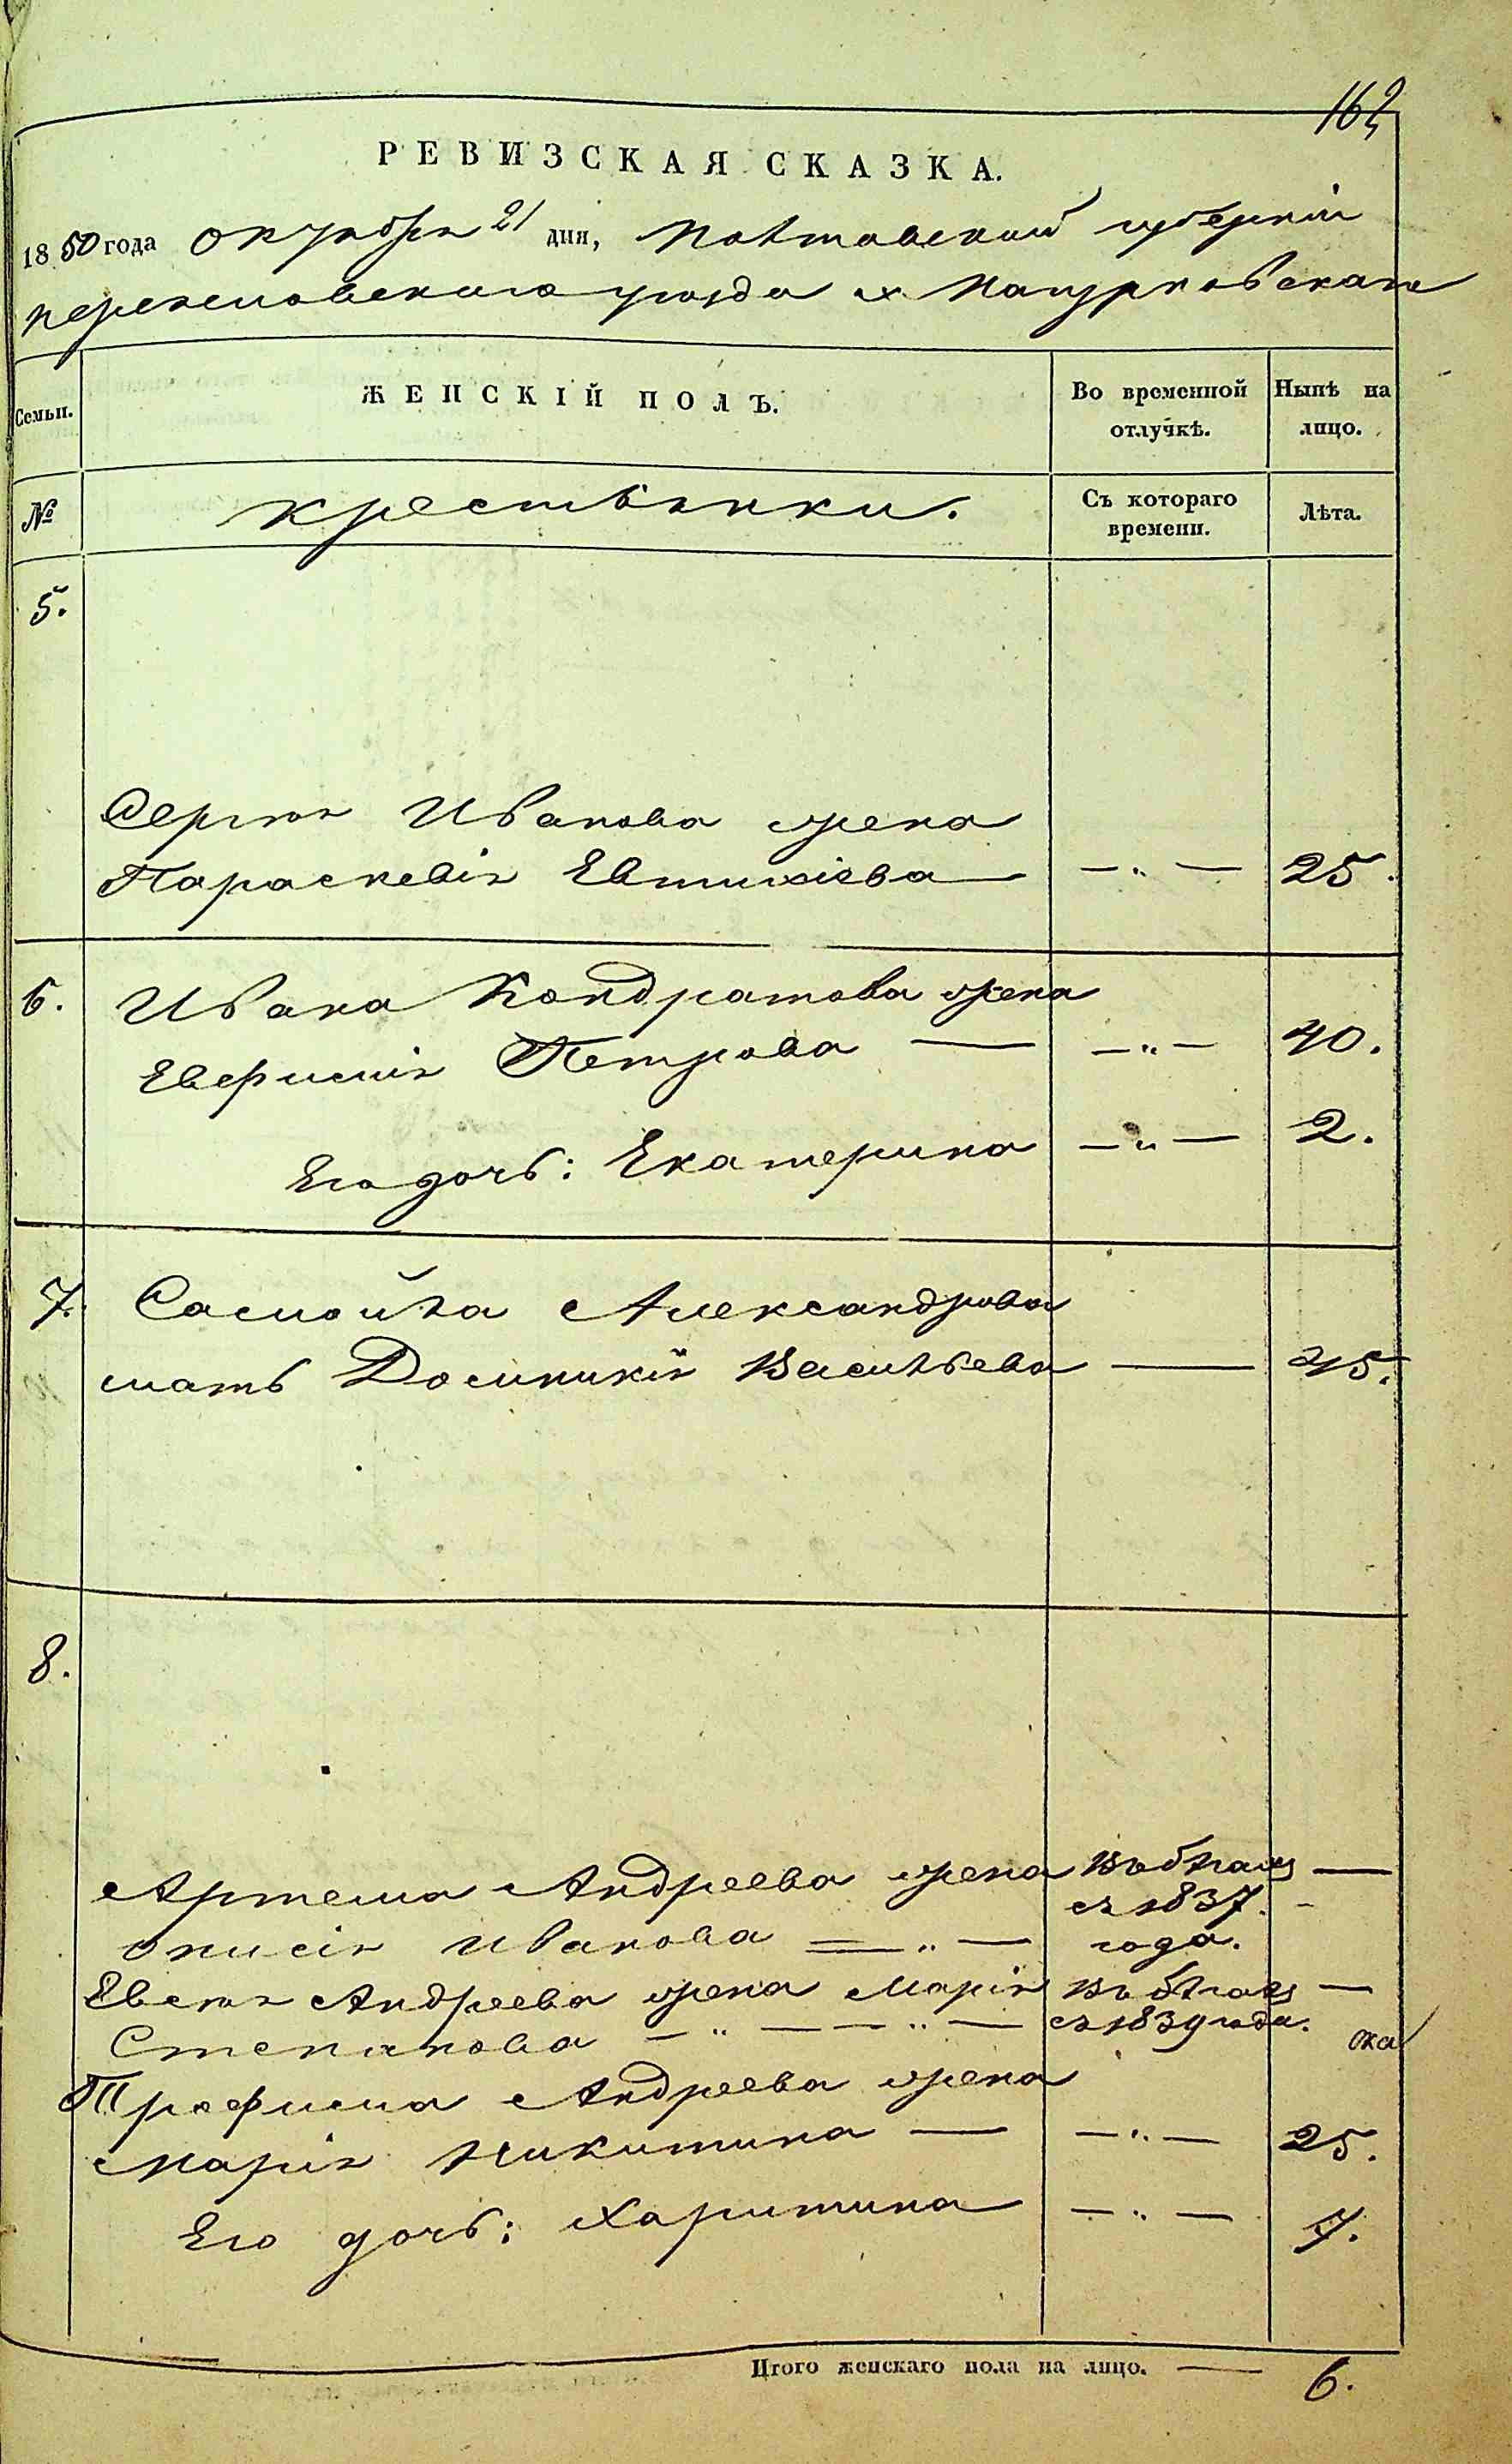 162
РЕВИЗСКАЯ СКАЗКА.
1850 года октября 21 дня, Полтавской губерніи
переяславскаго уезда х. Мацуковскаго
Семьи. ЖЕНСКІЙ ПОЛЪ. Во временной отлучкѣ. Нынѣ на лицо.
№ крестьянки. Съ котораго времени. Лѣта.
5.
Сергея Иванова жена
Параскевія Евтихіева — „ — 25.
6. Ивана Кондратова жена
Евфимія Петрова — — „ — 40.
Его дочь: Екатерина — „ — 2.
7. Самойла Александрова
мать Домникія Васильева — 45.
8.
Артема Андреева жена въ бѣгахъ —
онисія Иванова — „ — съ 1837. года.
Евсея Андреева жена Марія въ бѣгахъ —
Степанова — „ — — „ — съ 1839 года.
Трофима Андреева жена
Марія Никитина — — „ — 25.
Его дочь: Харитина — „ — 7.
Итого женскаго пола на лицо. — 6.